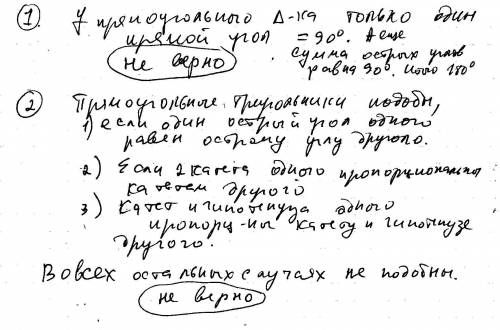 ① У прямоугольного Δ-ка только один
прямой угол = 90°. А еще
сумма острых углов
равна 90°. Итого 180°
не верно
② Прямоугольные треугольники подобны,
1) если один острый угол одного
равен острому углу другого.
2) Если 2 катета одного пропорциональны
катетам другого
3) Катет и гипотенуза одного
пропорц-ны катету и гипотенузе
другого.
Во всех остальных случаях не подобны.
не верно